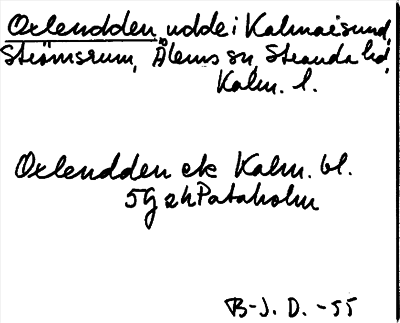 Oxlendden, udde i Kalmarsund,
Strömsrum, Ålems sn, Stranda hd,
Kalm. l.
Oxlendden ek Kalm. bl.
5G 2h Pataholm
B-J. D. -55